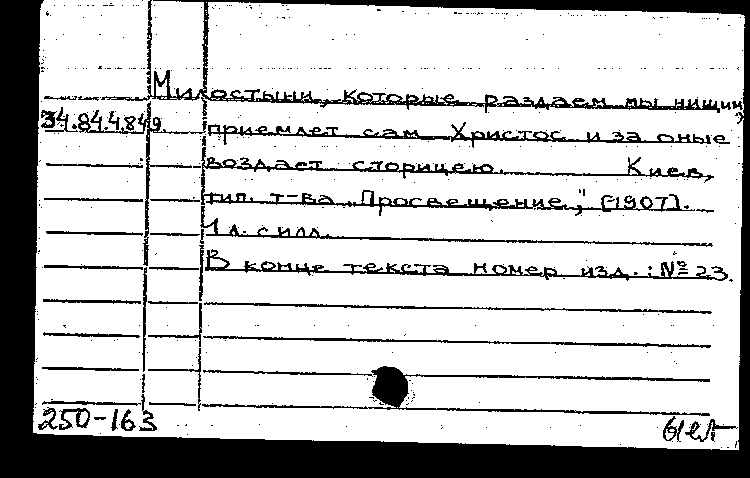 Милостыни, которые раздаем мы нищим,
34.84.4.849 приемлет сам Христос и за оные
воздает сторицею. Киев,
тип. т-ва „Просвещение", [1907].
1 л. силл.
В конце текста номер изд.: № 23.
250-163